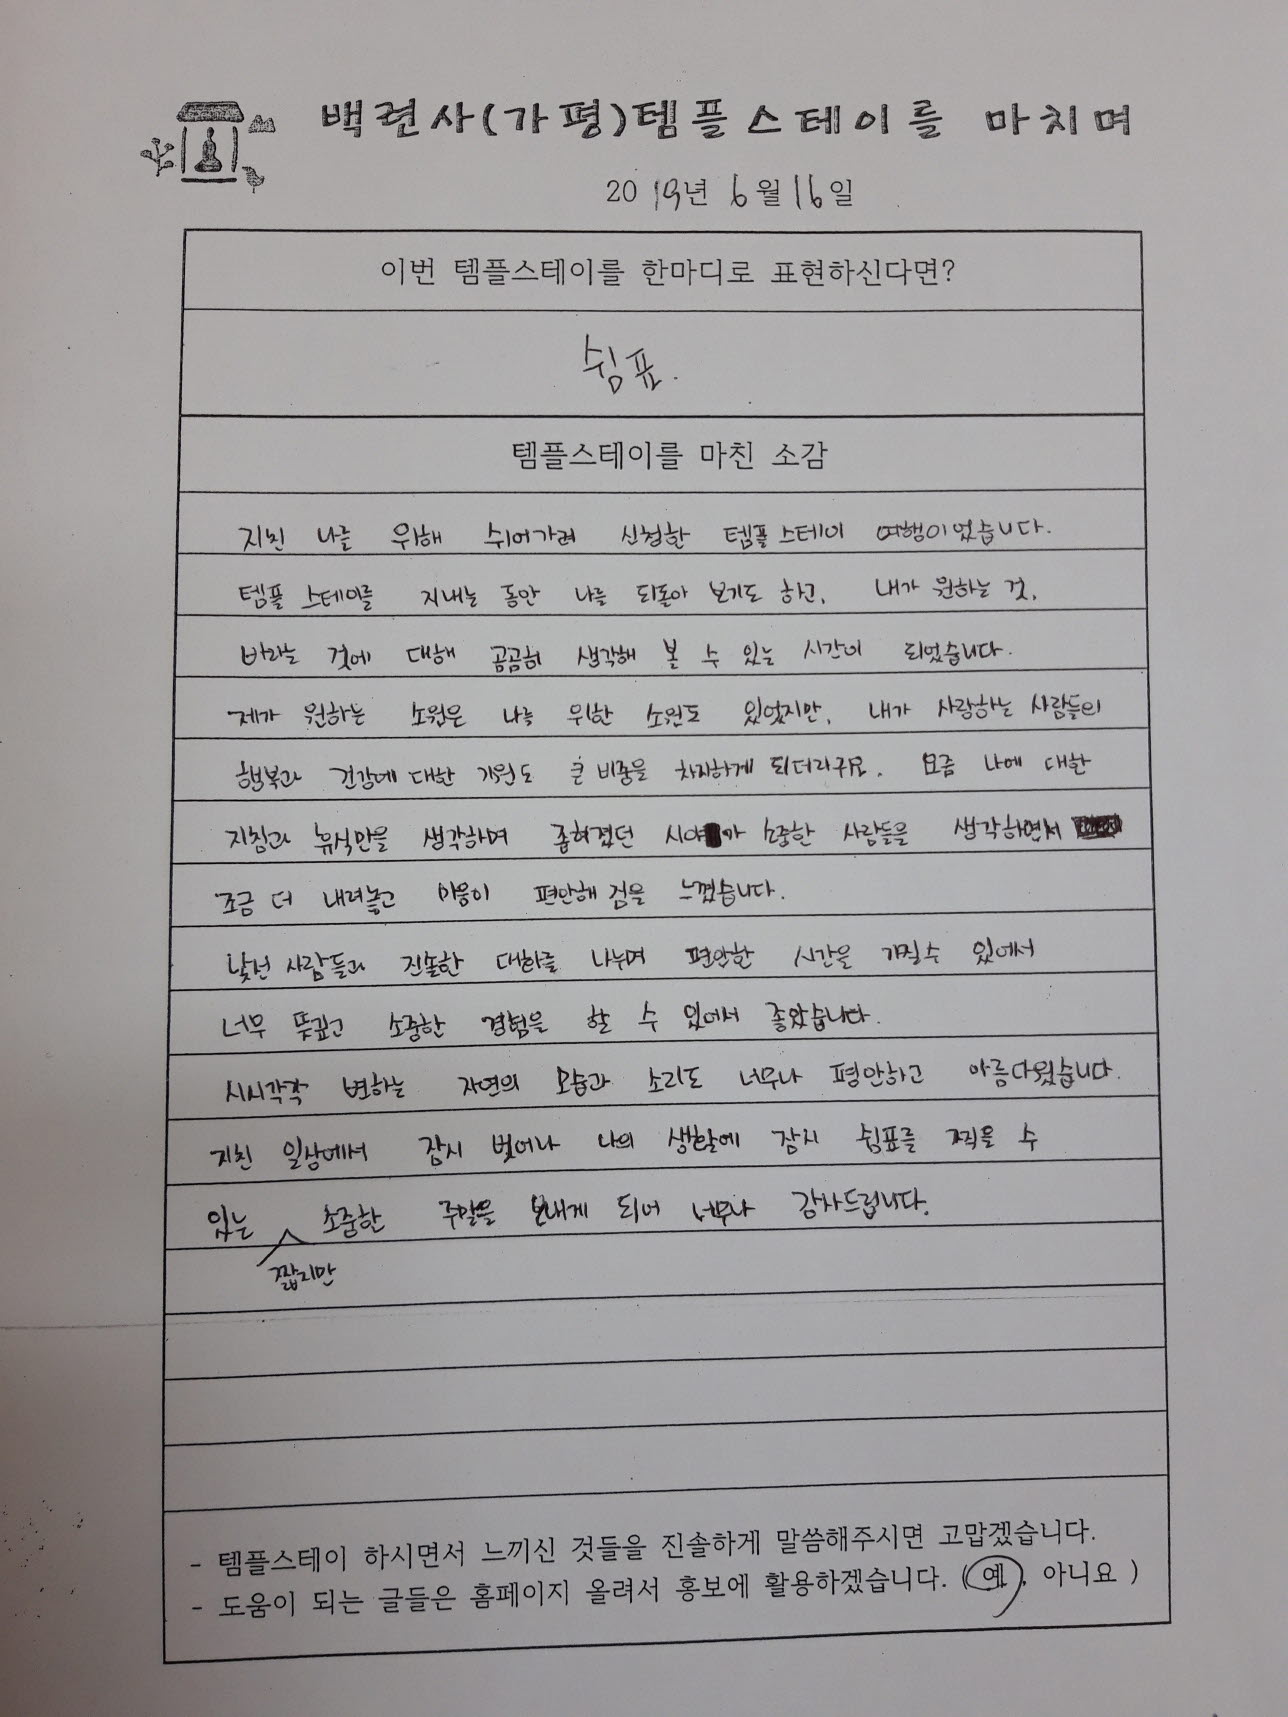 백련사(가평)템플스테이를 마치며
2019년 6월 16일
이번 템플스테이를 한마디로 표현하신다면?
쉼표.
템플스테이를 마친 소감
지친 나를 위해 쉬어가려 신청한 템플스테이 여행이었습니다.
템플 스테이를 지내는 동안 나를 되돌아 보기도 하고, 내가 원하는 것,
바라는 것에 대해 곰곰히 생각해 볼 수 있는 시간이 되었습니다.
제가 원하는 소원은 나를 위한 소원도 있었지만, 내가 사랑하는 사람들의
행복과 건강에 대한 기원도 큰 비중을 차지하게 되더라구요. 요즘 나에 대한
지침과 휴식만을 생각하며 좁혀졌던 시야가 소중한 사람들을 생각하면서
조금 더 내려놓고 마음이 편안해 짐을 느꼈습니다.
낯선 사람들과 진솔한 대화를 나누며 편안한 시간을 가질수 있어서
너무 뜻깊고 소중한 경험을 할 수 있어서 좋았습니다.
시시각각 변하는 자연의 모습과 소리도 너무나 평안하고 아름다웠습니다.
지친 일상에서 잠시 벗어나 나의 생활에 잠시 쉼표를 찍을 수
있는 소중한 주말을 보내게 되어 너무나 감사드립니다.
짧지만
- 템플스테이 하시면서 느끼신 것들을 진솔하게 말씀해주시면 고맙겠습니다.
- 도움이 되는 글들은 홈페이지 올려서 홍보에 활용하겠습니다. (예, 아니요)